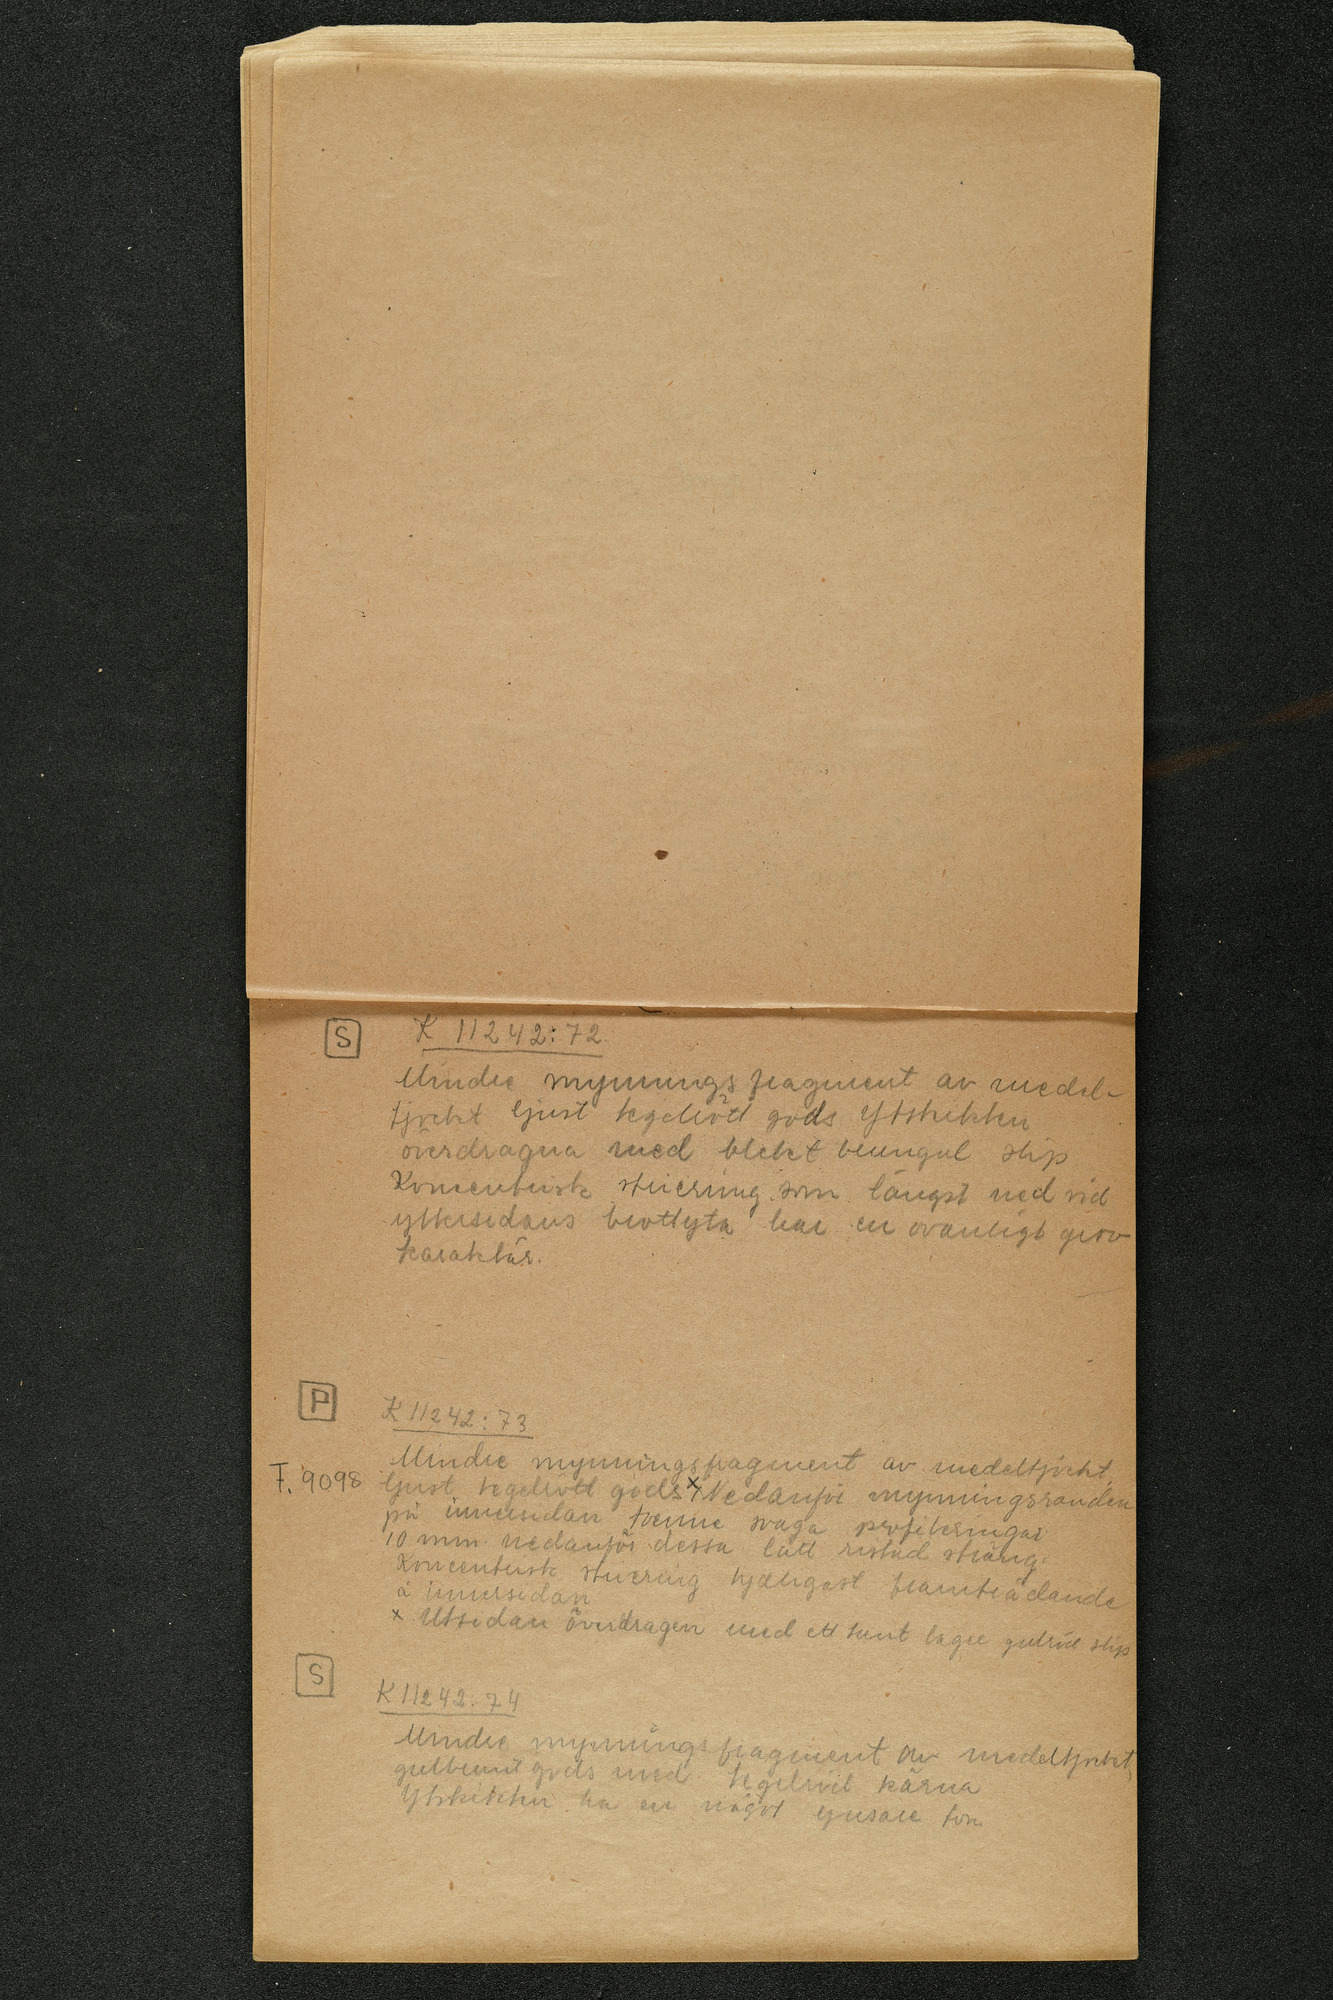 S K 11242:72
Mindre mynningsfragment av medel-
tjockt ljust tegelrött gods Ytskikten
överdragna med blekt brungul slip
Koncentrisk striering som längst ned vid
yttersidans brottyta har en ovanligt grov
karaktär.
P K 11242:73
F. 9098 Mindre mynningsfragment av medeltjockt
ljust tegelrött gods x Nedanför mynningsranden
på innersidan trenne svaga profileringar
10 mm nedanför dessa lätt ristad sträng.
Koncentrisk striering tydligast framträdande
å innersidan
x Utsidan överdragen med ett tunt lager gulröd slip
S K 11242:74
Mindre mynningsfragment av medeltjockt,
gulbrunt gods med tegelröd kärna
Ytskikten ha en något ljusare ton.